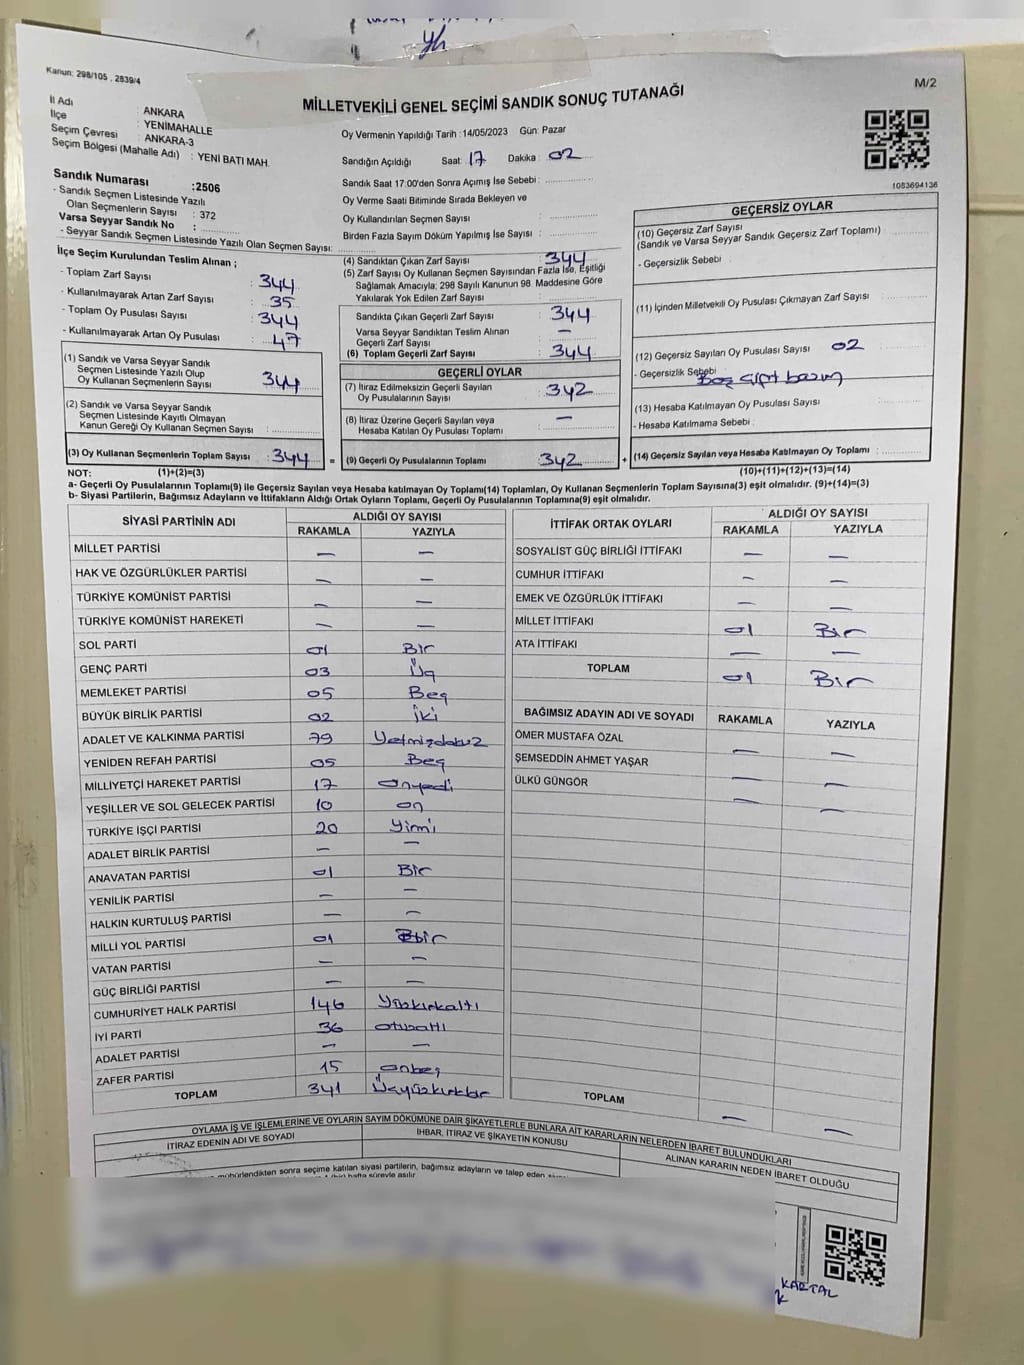 Kanun: 298/105 , 2839/4
M/2
MİLLETVEKİLİ GENEL SEÇİMİ SANDIK SONUÇ TUTANAĞI
İl Adı : ANKARA
İlçe : YENİMAHALLE
Seçim Çevresi : ANKARA-3
Seçim Bölgesi (Mahalle Adı) : YENİ BATI MAH.
Sandık Numarası :2506
- Sandık Seçmen Listesinde Yazılı
Olan Seçmenlerin Sayısı : 372
Varsa Seyyar Sandık No :
- Seyyar Sandık Seçmen Listesinde Yazılı Olan Seçmen Sayısı:
Oy Vermenin Yapıldığı Tarih :14/05/2023 Gün: Pazar
Sandığın Açıldığı Saat: 17 Dakika : 02
Sandık Saat 17:00'den Sonra Açımış İse Sebebi :
Oy Verme Saati Bitiminde Sırada Bekleyen ve
Oy Kullandırılan Seçmen Sayısı :
Birden Fazla Sayım Döküm Yapılmış İse Sayısı :
1083694136
İlçe Seçim Kurulundan Teslim Alınan ;
- Toplam Zarf Sayısı : 344
- Kullanılmayarak Artan Zarf Sayısı : 35
- Toplam Oy Pusulası Sayısı : 344
- Kullanılmayarak Artan Oy Pusulası : 47
(1) Sandık ve Varsa Seyyar Sandık
Seçmen Listesinde Yazılı Olup
Oy Kullanan Seçmenlerin Sayısı : 344
(2) Sandık ve Varsa Seyyar Sandık
Seçmen Listesinde Kayıtlı Olmayan
Kanun Gereği Oy Kullanan Seçmen Sayısı :
(3) Oy Kullanan Seçmenlerin Toplam Sayısı : 344 =
(4) Sandıktan Çıkan Zarf Sayısı : 344
(5) Zarf Sayısı Oy Kullanan Seçmen Sayısından Fazla İse, Eşitliği
Sağlamak Amacıyla; 298 Sayılı Kanunun 98. Maddesine Göre
Yakılarak Yok Edilen Zarf Sayısı :
Sandıkta Çıkan Geçerli Zarf Sayısı : 344
Varsa Seyyar Sandıktan Teslim Alınan
Geçerli Zarf Sayısı : —
(6) Toplam Geçerli Zarf Sayısı : 344
GEÇERLİ OYLAR
(7) İtiraz Edilmeksizin Geçerli Sayılan
Oy Pusulalarının Sayısı : 342
(8) İtiraz Üzerine Geçerli Sayılan veya
Hesaba Katılan Oy Pusulası Toplamı : —
(9) Geçerli Oy Pusulalarının Toplamı : 342 +
GEÇERSİZ OYLAR
(10) Geçersiz Zarf Sayısı
(Sandık ve Varsa Seyyar Sandık Geçersiz Zarf Toplamı) :
- Geçersizlik Sebebi :
(11) İçinden Milletvekili Oy Pusulası Çıkmayan Zarf Sayısı :
(12) Geçersiz Sayılan Oy Pusulası Sayısı : 02
- Geçersizlik Sebebi : Boş
(13) Hesaba Katılmayan Oy Pusulası Sayısı :
- Hesaba Katılmama Sebebi :
(14) Geçersiz Sayılan veya Hesaba Katılmayan Oy Toplamı :
NOT: (1)+(2)=(3) (10)+(11)+(12)+(13)=(14)
a- Geçerli Oy Pusulalarının Toplamı(9) ile Geçersiz Sayılan veya Hesaba katılmayan Oy Toplamı(14) Toplamları, Oy Kullanan Seçmenlerin Toplam Sayısına(3) eşit olmalıdır. (9)+(14)=(3)
b- Siyasi Partilerin, Bağımsız Adayların ve İttifakların Aldığı Ortak Oyların Toplamı, Geçerli Oy Pusulalarının Toplamına(9) eşit olmalıdır.
SİYASİ PARTİNİN ADI ALDIĞI OY SAYISI
RAKAMLA YAZIYLA
MİLLET PARTİSİ — —
HAK VE ÖZGÜRLÜKLER PARTİSİ — —
TÜRKİYE KOMÜNİST PARTİSİ — —
TÜRKİYE KOMÜNİST HAREKETİ — —
SOL PARTİ 01 Bir
GENÇ PARTİ 03 Üç
MEMLEKET PARTİSİ 05 Beş
BÜYÜK BİRLİK PARTİSİ 02 İki
ADALET VE KALKINMA PARTİSİ 79 Yetmişdokuz
YENİDEN REFAH PARTİSİ 05 Beş
MİLLİYETÇİ HAREKET PARTİSİ 17 Onyedi
YEŞİLLER VE SOL GELECEK PARTİSİ 10 on
TÜRKİYE İŞÇİ PARTİSİ 20 Yirmi
ADALET BİRLİK PARTİSİ — —
ANAVATAN PARTİSİ 01 Bir
YENİLİK PARTİSİ — —
HALKIN KURTULUŞ PARTİSİ — —
MİLLİ YOL PARTİSİ 01 Bir
VATAN PARTİSİ — —
GÜÇ BİRLİĞİ PARTİSİ — —
CUMHURİYET HALK PARTİSİ 146 Yüzkırkaltı
İYİ PARTİ 36 otuzaltı
ADALET PARTİSİ — —
ZAFER PARTİSİ 15 onbeş
TOPLAM 341 Üçyüzkırkbir
İTTİFAK ORTAK OYLARI ALDIĞI OY SAYISI
RAKAMLA YAZIYLA
SOSYALİST GÜÇ BİRLİĞİ İTTİFAKI — —
CUMHUR İTTİFAKI — —
EMEK VE ÖZGÜRLÜK İTTİFAKI — —
MİLLET İTTİFAKI 01 Bir
ATA İTTİFAKI — —
TOPLAM 01 Bir
BAĞIMSIZ ADAYIN ADI VE SOYADI RAKAMLA YAZIYLA
ÖMER MUSTAFA ÖZAL — —
ŞEMSEDDİN AHMET YAŞAR — —
ÜLKÜ GÜNGÖR — —
TOPLAM — —
OYLAMA İŞ VE İŞLEMLERİNE VE OYLARIN SAYIM DÖKÜMÜNE DAİR ŞİKAYETLERLE BUNLARA AİT KARARLARIN NELERDEN İBARET BULUNDUKLARI
İTİRAZ EDENİN ADI VE SOYADI İHBAR, İTİRAZ VE ŞİKAYETİN KONUSU ALINAN KARARIN NEDEN İBARET OLDUĞU
mühürlendikten sonra seçime katılan siyasi partilerin, bağımsız adayların ve talep eden
hafta süreyle asılır.
KARTAL